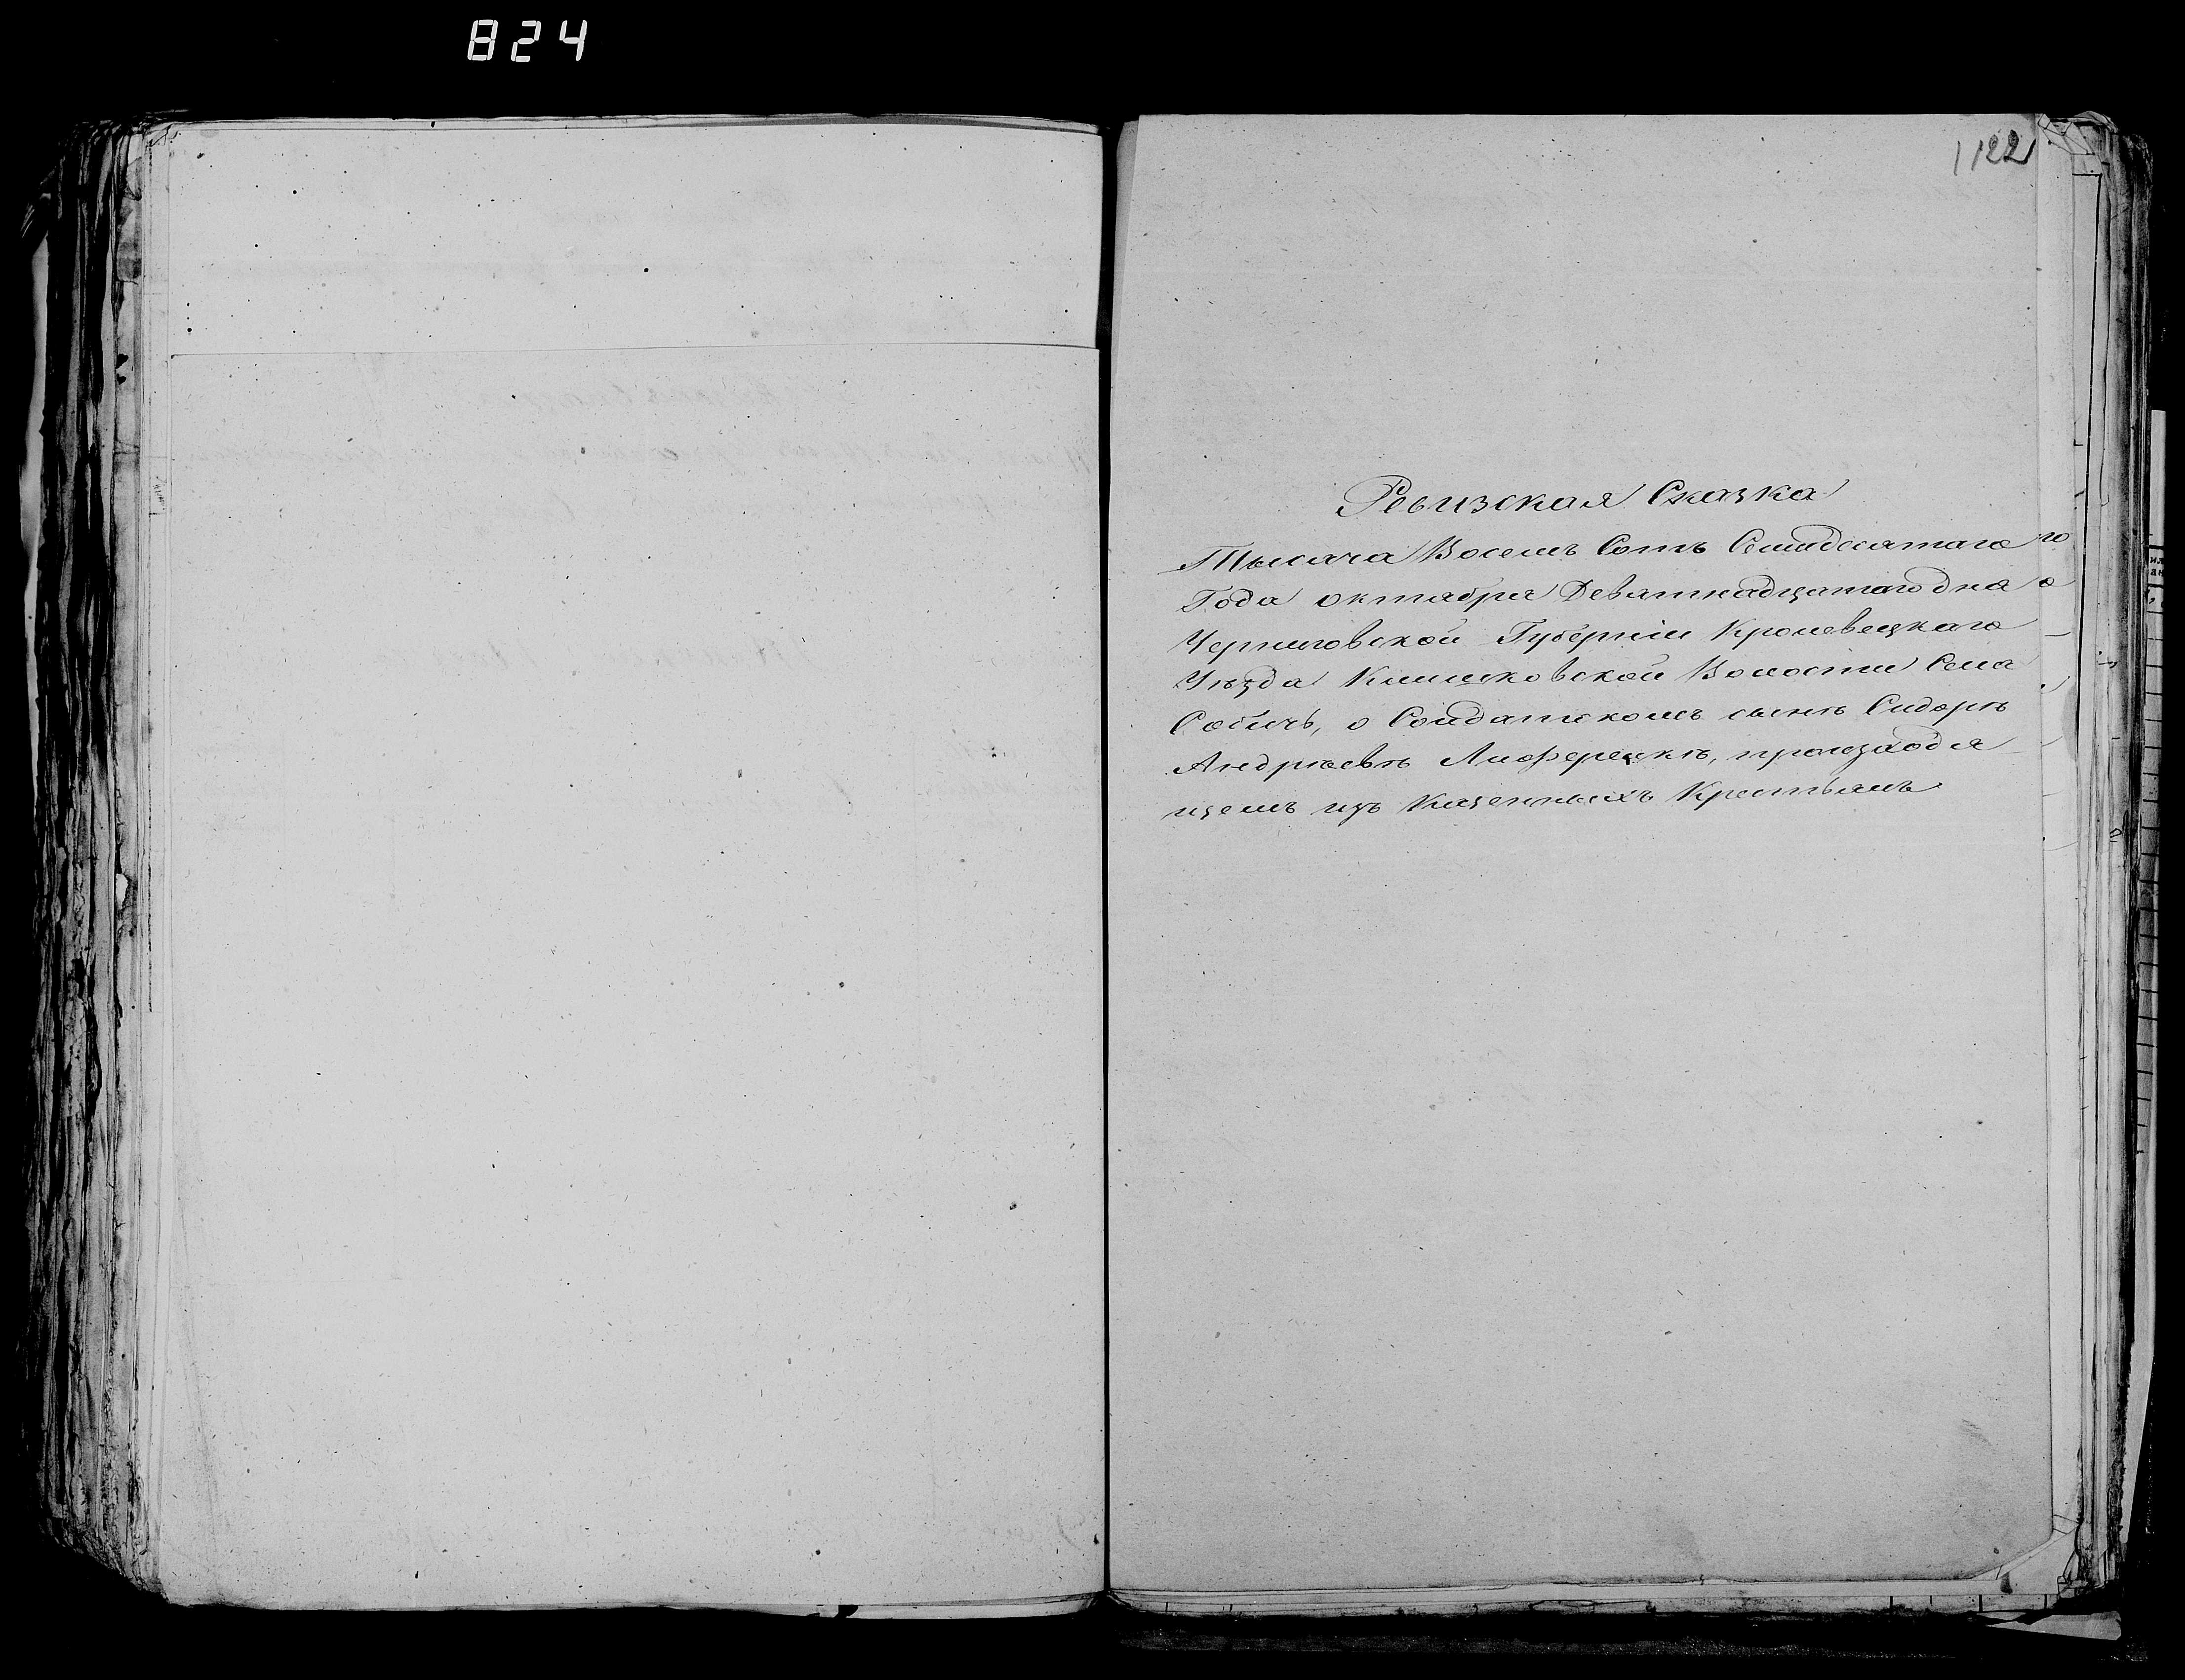 824
1122
Ревизская Сказка
Тысяча Восемъ Сотъ Семидесятаго
Года октября Девятнадцатаго дня
Черниговской Губерніи Кролевецкаго
Уѣзда Клишковской Волости Села
Собичъ, о Солдатскомъ сынѣ Сидорѣ
Андрѣевѣ Лиференкѣ, происходя
щемъ изъ Казенныхъ Крестьянъ